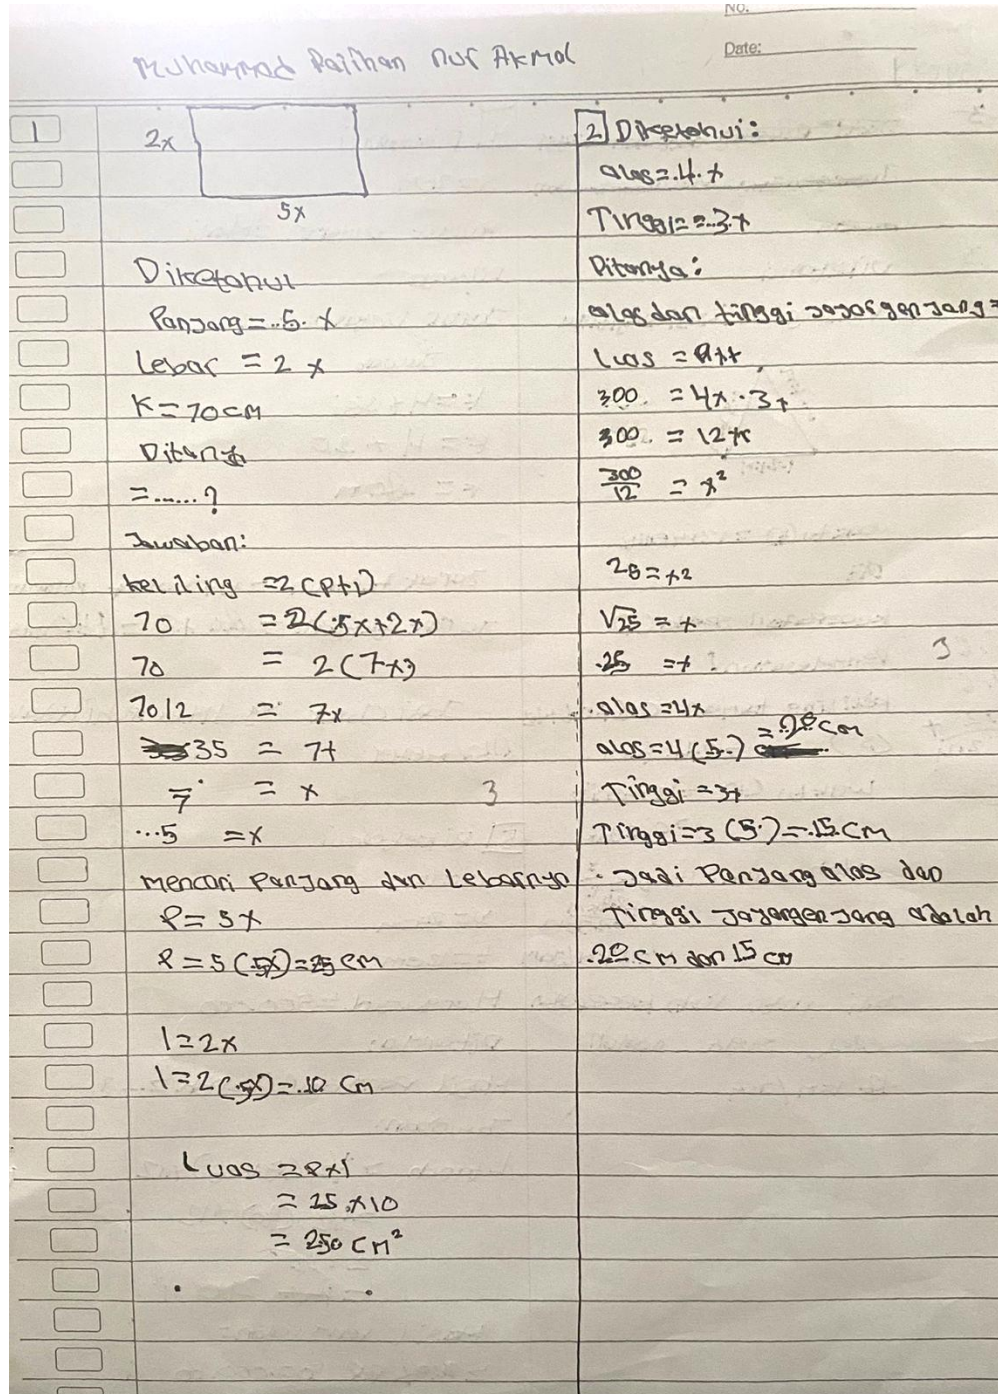 No.
Date:
Muhammad Raihan Nur Akmal
1
2x
5x
Diketahui
Panjang = ..5. x
Lebar = 2 x
K = 70 cm
Ditanya
= ......?
Jawaban:
keliling = 2(P+l)
70 = 2(5x+2x)
70 = 2(7x)
70/2 = 7x
35 = 7x
7 = x
3
...5 = x
mencari Panjang dan Lebarnya
P = 5x
P = 5(5x) = 25 cm
l = 2x
l = 2(.5x) = .10 cm
Luas = P x l
= 25 x 10
= 250 cm²
2 Diketahui:
alas = .4. x
Tinggi = ..3. x
Ditanya:
alas dan tinggi jajargenjang =
Luas = a x t
300 = 4x . 3x
300. = 12x
300/12 = x²
25 = x2
√25 = x
.25 = x
3
alas = 4x
alas = 4(5.) = .20 cm
Tinggi = 3x
Tinggi = 3(5.) = .15. cm
. Jadi Panjang alas dan
Tinggi jajargenjang adalah
.20 cm dan 15 cm